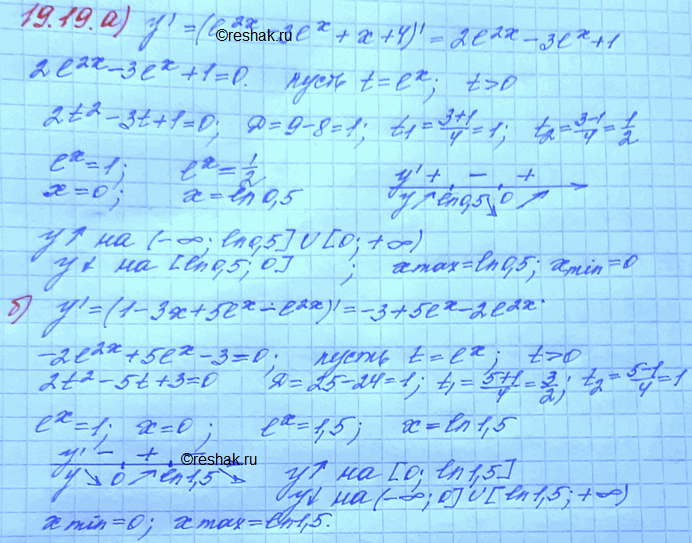 19.19. а) y' = (e^2x - 3e^x + x + 4)' = 2e^2x - 3e^x + 1
©reshak.ru
2e^2x - 3e^x + 1 = 0. пусть t = e^x; t > 0
2t² - 3t + 1 = 0; D = 9 - 8 = 1; t₁ = (3+1)/4 = 1; t₂ = (3-1)/4 = 1/2
e^x = 1; e^x = 1/2
x = 0; x = ln0,5
y' + - +
y ↗ ln0,5 ↘ 0 ↗
y↑ на (-∞; ln0,5] ∪ [0; +∞)
y↓ на [ln0,5; 0] ; xmax = ln0,5; xmin = 0
б) y' = (1 - 3x + 5e^x - e^2x)' = -3 + 5e^x - 2e^2x.
-2e^2x + 5e^x - 3 = 0; пусть t = e^x; t > 0
2t² - 5t + 3 = 0 D = 25 - 24 = 1; t₁ = (5+1)/4 = 3/2; t₂ = (5-1)/4 = 1
e^x = 1; x = 0; e^x = 1,5; x = ln1,5
y' - +
©reshak.ru
y ↘ 0 ↗ ln1,5 ↘
y↑ на [0; ln1,5]
y↓ на (-∞; 0] ∪ [ln1,5; +∞)
xmin = 0; xmax = ln1,5.